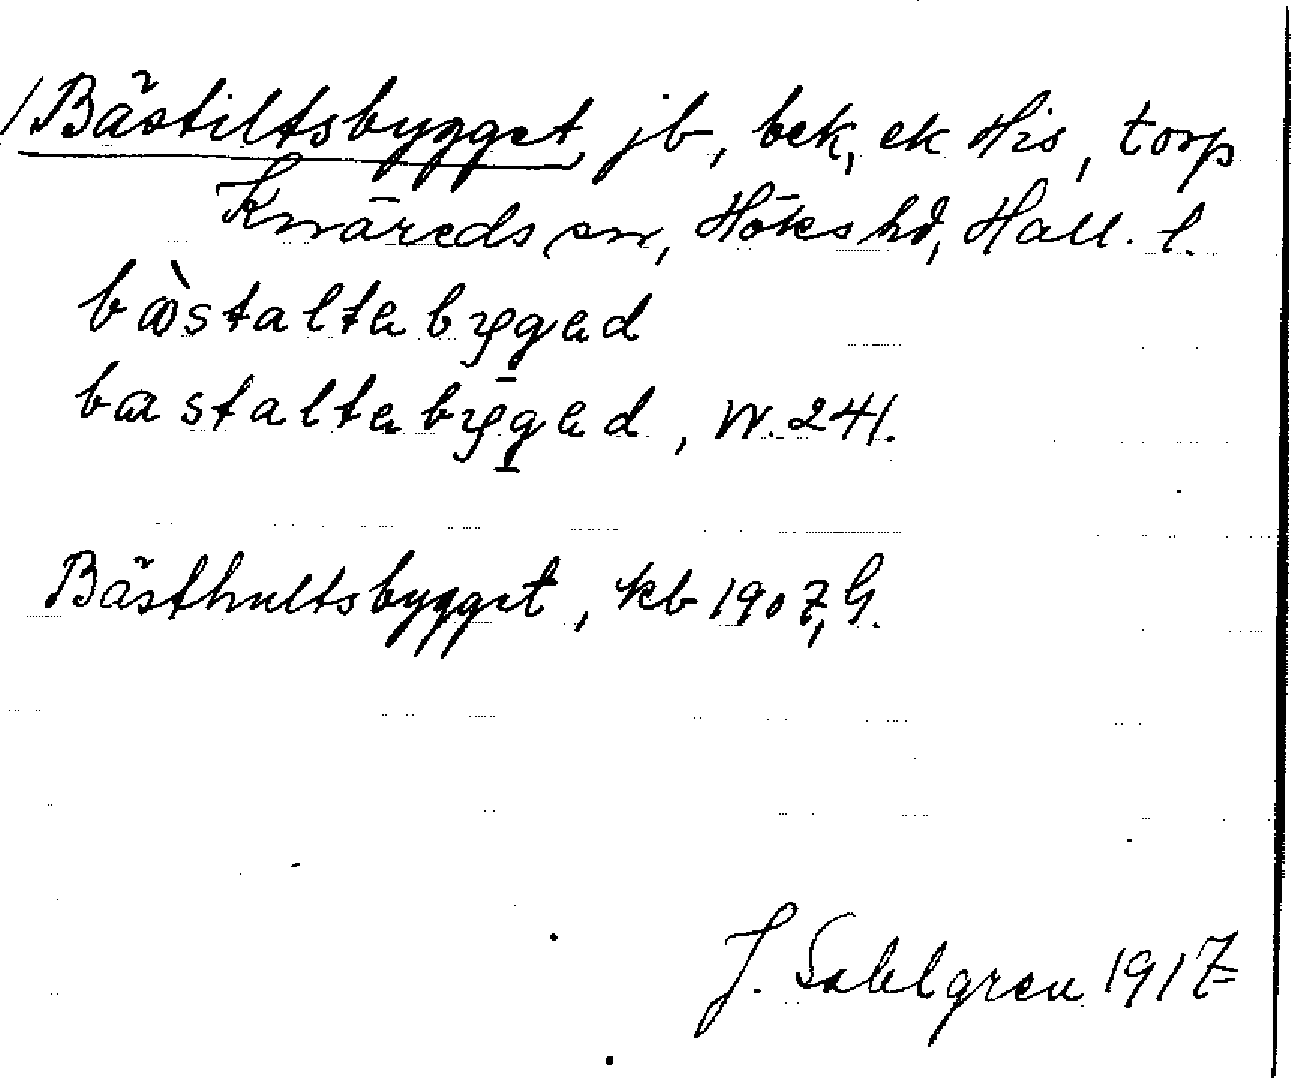 /Bästiltsbygget, jb, bek, ek His, torp
Knäreds sn, Höks hd, Hall. l.
bæ̀staltabygad
bæstaltabygad, W. 241.
Bästhultsbygget, kb 1907, G.
J. Sahlgren 1917